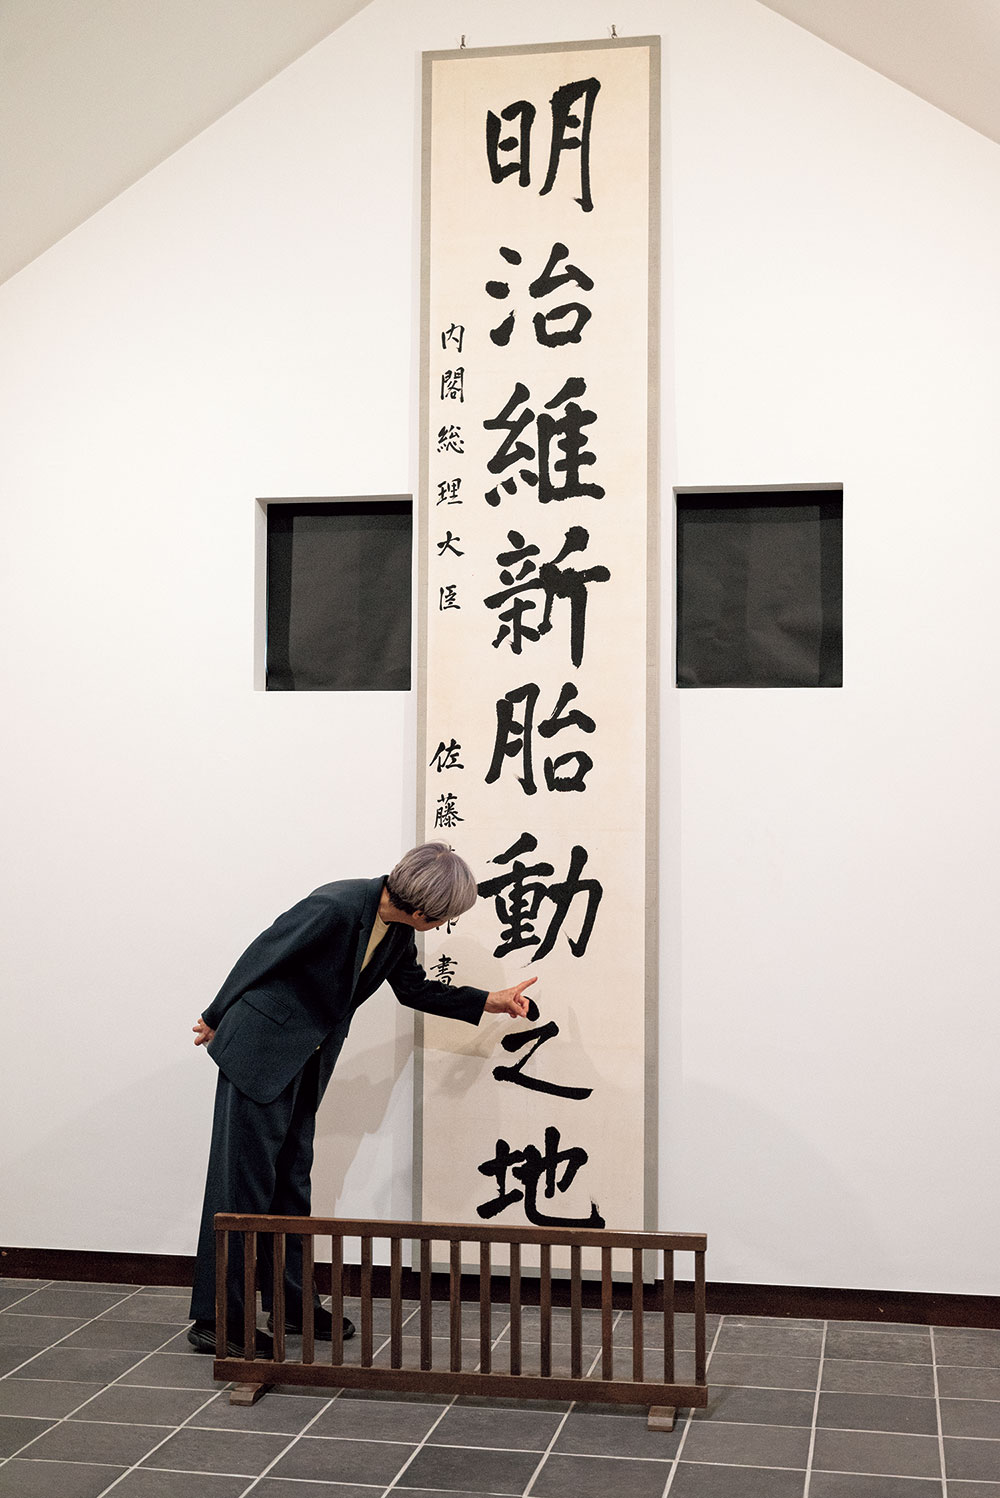 明治維新胎動之地
内閣総理大臣 佐藤 作書